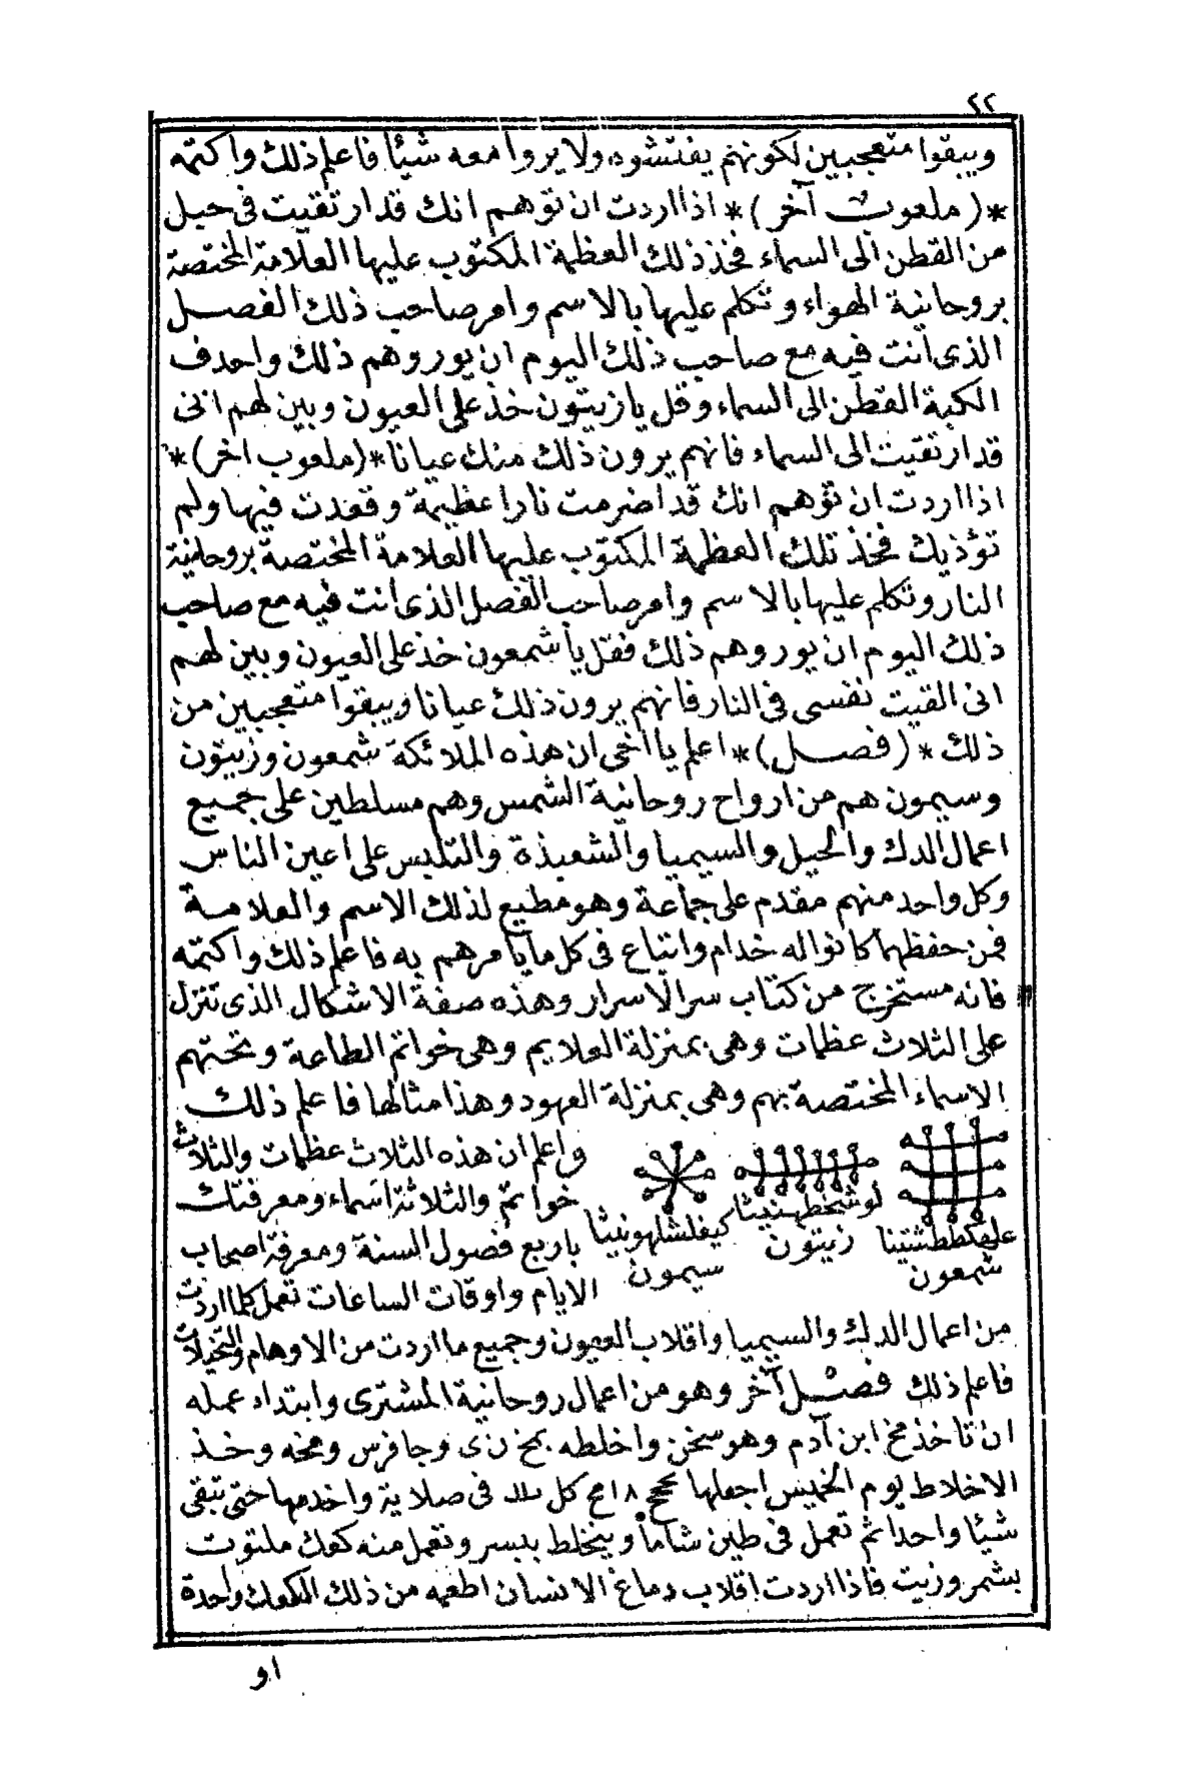 ٢٢
ويبقوا متعجبين لكونهم يفتشوه ولا يروا معه شيئا فاعلم ذلك واكتمه
*(ملعوب آخر)* اذا اردت ان توهم انك قد ارتقيت في حبل
من القطن الى السماء فخذ ذلك العظمة المكتوب عليها العلامة المختصة
بروحانية الهواء وتكلم عليها بالاسم وامر صاحب ذلك الفصل
الذى انت فيه مع صاحب ذلك اليوم ان يوروهم ذلك واحدف
الكبة القطن الى السماء وقل يا زيتون خذ على العيون وبين لهم انى
قد ارتقيت الى السماء فانهم يرون ذلك منك عيانا *(ملعوب اخر)*
اذا اردت ان توهم انك قد اضرمت نارا عظيمة وقعدت فيها ولم
تؤذيك فخذ تلك العظمة المكتوب عليها العلامة المختصة بروحانية
النار وتكلم عليها بالاسم وامر صاحب الفصل الذى انت فيه مع صاحب
ذلك اليوم ان يوروهم ذلك فقل يا شمعون خذ على العيون وبين لهم
انى القيت نفسى فى النار فانهم يرون ذلك عيانا ويبقوا متعجبين من
ذلك *(فصل)* اعلم يا اخى ان هذه الملائكة شمعون وزيتون
وسيمون هم من ارواح روحانية الشمس وهم مسلطين على جميع
اعمال الدك والحيل والسيميا والشعبذة والتلبس على اعين الناس
وكل واحد منهم مقدم على جماعة وهو مطيع لذلك الاسم والعلامة
فمن حفظها كانوا له خدام واتباع فى كل ما يأمرهم به فاعلم ذلك واكتمه
فانه مستخرج من كتاب سر الاسرار وهذه صفة الاشكال الذى تنزل
على الثلاث عظمات وهى بمنزلة العلايم وهى خواتم الطاعة وتحتهم
الاسماء المختصة بهم وهى بمنزلة العهود وهذا مثالها فاعلم ذلك
واعلم ان هذه الثلاث عظمات والثلاث
خواتم والثلاثة اسماء ومعرفتك
باربع فصول السنة ومعرفة اصحاب
الايام واوقات الساعات تعمل كلما اردت
زيتون
سيمون
شمعون
من اعمال الدك والسيميا واقلاب العيون وجميع ما اردت من الاوهام والتخيلات
فاعلم ذلك فصل آخر وهو من اعمال روحانية المشترى وابتداء عمله
ان تاخذ مخ ابن آدم وهو سخن واخلطه بمخ وجا فرس ومخه وخذ
الاخلاط يوم الخميس اجعلها كل فى صلاية واخدمها حتى تبقى
شيئا واحدا ثم تعمل فى طين ويخلط ببسر وتعمل منه كعك ملتوت
بشمر وزيت فاذا اردت اقلاب دماغ الانسان اطعمه من ذلك الكعك واحدة
او